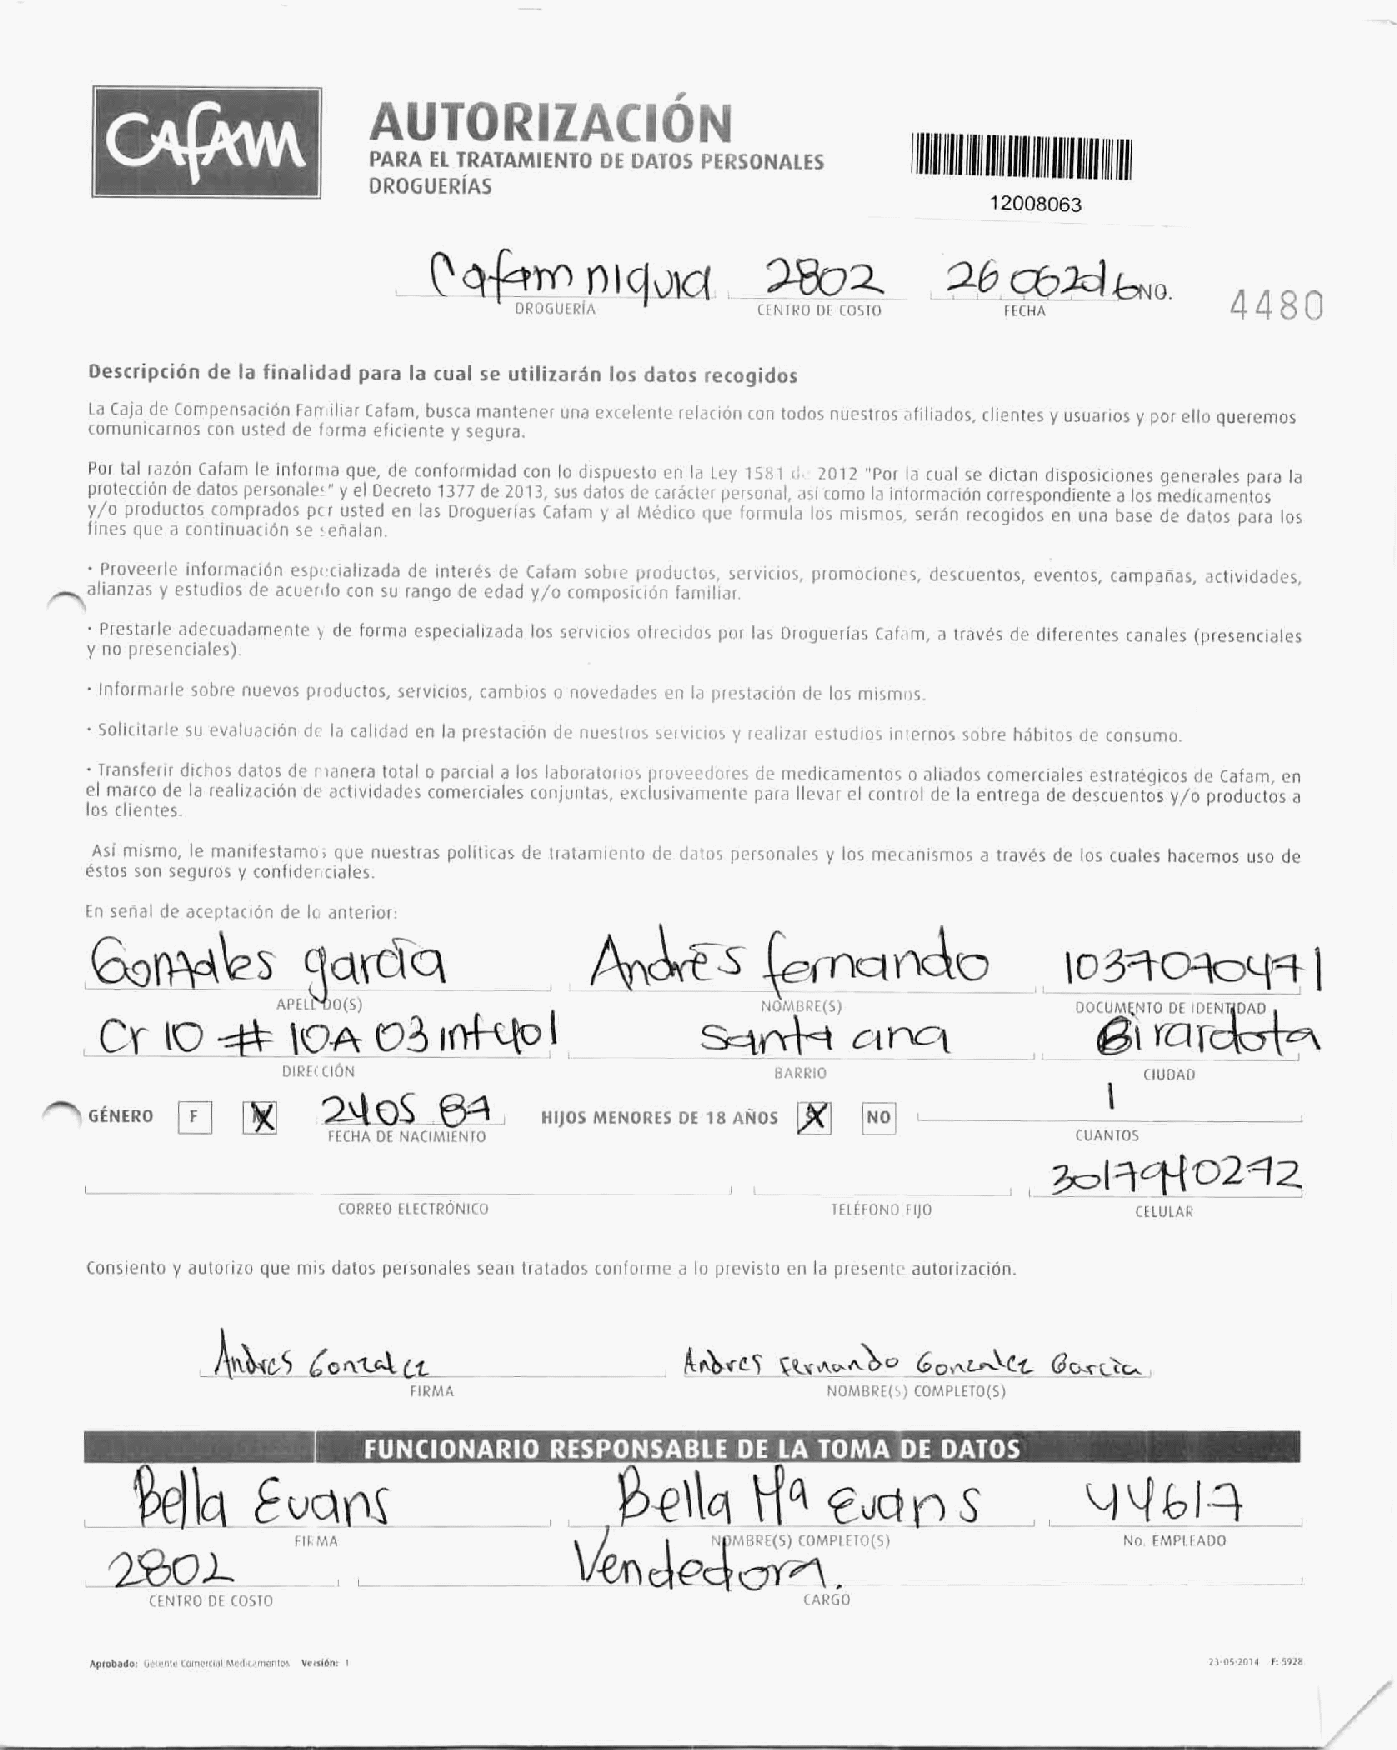 CAFAM
AUTORIZACIÓN
PARA EL TRATAMIENTO DE DATOS PERSONALES
DROGUERÍAS
12008063
Cafam niquia 2802 26 062016 NO. 4480
DROGUERÍA CENTRO DE COSTO FECHA
Descripción de la finalidad para la cual se utilizarán los datos recogidos
La Caja de Compensación Familiar Cafam, busca mantener una excelente relación con todos nuestros afiliados, clientes y usuarios y por ello queremos
comunicarnos con usted de forma eficiente y segura.
Por tal razón Cafam le informa que, de conformidad con lo dispuesto en la Ley 1581 de 2012 "Por la cual se dictan disposiciones generales para la
protección de datos personales" y el Decreto 1377 de 2013, sus datos de carácter personal, asi como la información correspondiente a los medicamentos
y/o productos comprados por usted en las Droguerías Cafam y al Médico que formula los mismos, serán recogidos en una base de datos para los
fines que a continuación se señalan.
· Proveerle información especializada de interés de Cafam sobre productos, servicios, promociones, descuentos, eventos, campañas, actividades,
alianzas y estudios de acuerdo con su rango de edad y/o composición familiar.
· Prestarle adecuadamente y de forma especializada los servicios ofrecidos por las Droguerías Cafam, a través de diferentes canales (presenciales
y no presenciales).
· Informarle sobre nuevos productos, servicios, cambios o novedades en la prestación de los mismos.
· Solicitarle su evaluación de la calidad en la prestación de nuestros servicios y realizar estudios internos sobre hábitos de consumo.
· Transferir dichos datos de manera total o parcial a los laboratorios proveedores de medicamentos o aliados comerciales estratégicos de Cafam, en
el marco de la realización de actividades comerciales conjuntas, exclusivamente para llevar el control de la entrega de descuentos y/o productos a
los clientes.
Así mismo, le manifestamos que nuestras políticas de tratamiento de datos personales y los mecanismos a través de los cuales hacemos uso de
éstos son seguros y confidenciales.
En señal de aceptación de lo anterior:
Gonzales garcía Andrés fernando 1037070471
APELLIDO(S) NOMBRE(S) DOCUMENTO DE IDENTIDAD
Cr 10 # 10A 03 Santa ana Girardota
DIRECCIÓN BARRIO CIUDAD
GÉNERO F M 2405 87 HIJOS MENORES DE 18 AÑOS NO 1
FECHA DE NACIMIENTO CUANTOS
3017940272
CORREO ELECTRÓNICO TELÉFONO FIJO CELULAR
Consiento y autorizo que mis datos personales sean tratados conforme a lo previsto en la presente autorización.
Andres Gonzalez Andres Fernando Gonzalez Garcia
FIRMA NOMBRE(S) COMPLETO(S)
FUNCIONARIO RESPONSABLE DE LA TOMA DE DATOS
Bella Evans Bella Ma Evans 44617
FIRMA NOMBRE(S) COMPLETO(S) No. EMPLEADO
2802 Vendedora.
CENTRO DE COSTO CARGO
Aprobado: Gerente Comercial Medicamentos Versión: 1 23-05-2014 F: 5928